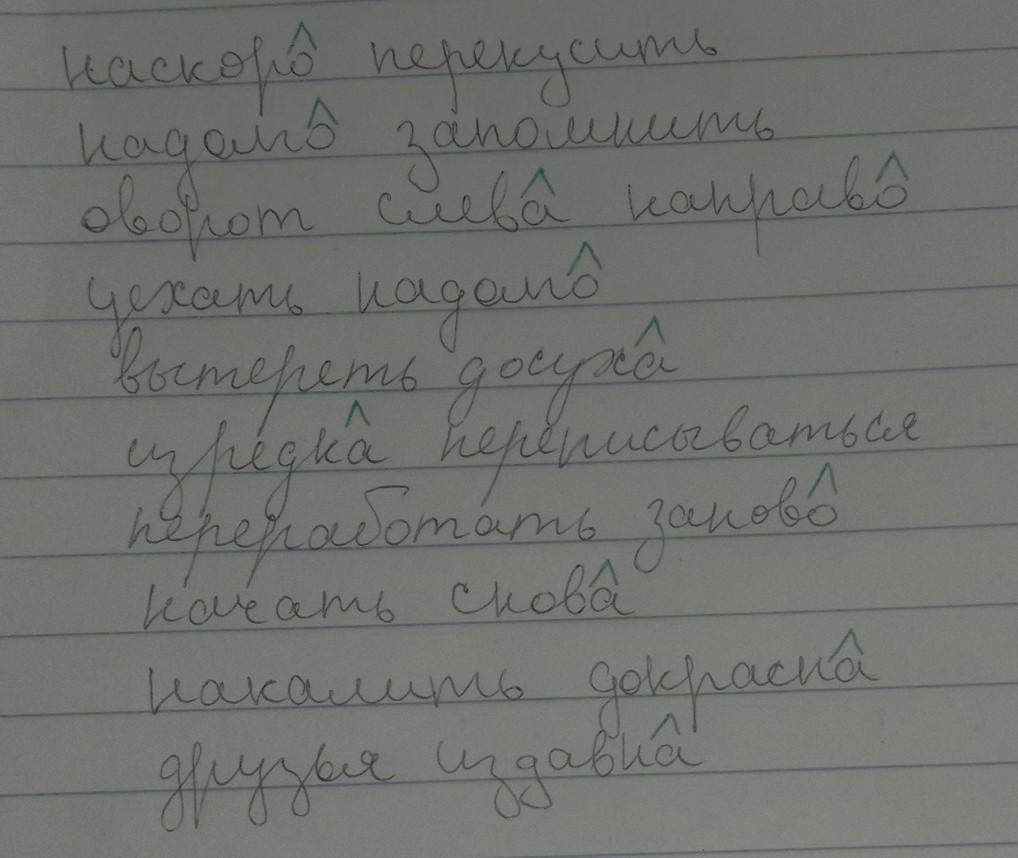 наскоро перекусить
надолго запомнить
оворот слева направо
уехать надолго
вытереть досуха
изредка переписываться
переработать заново
начать снова
накалить докрасна
друзья издавна